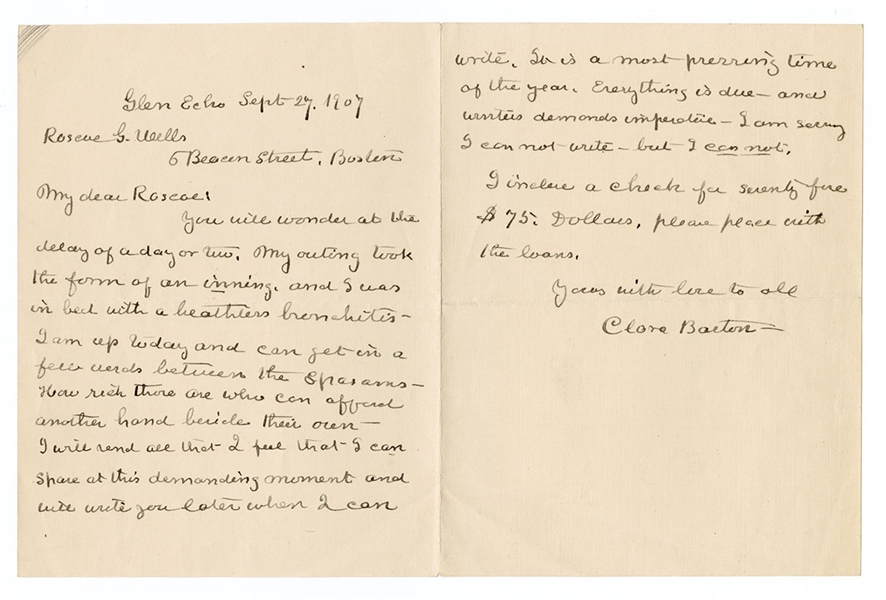 Glen Echo Sept 27. 1907
Roscoe G. Wells
6 Beacon Street, Boston
My dear Roscoe:
You will wonder at the
delay of a day or two. My outing took
the form of an inning. and I was
in bed with a breathless bronchitis –
I am up today and can get in a
few words between the spasams –
How rich those are who can afford
another hand beside their own –
I will send all that I feel that I can
spare at this demanding moment and
will write you later when I can
write. It is a most pressing time
of the year. Everything is due – and
winters demands imperative – I am sorry
I can not write – but I can not.
I inclose a check for seventy five
$75. Dollars, please place with
the loans.
Yours with love to all
Clara Barton –